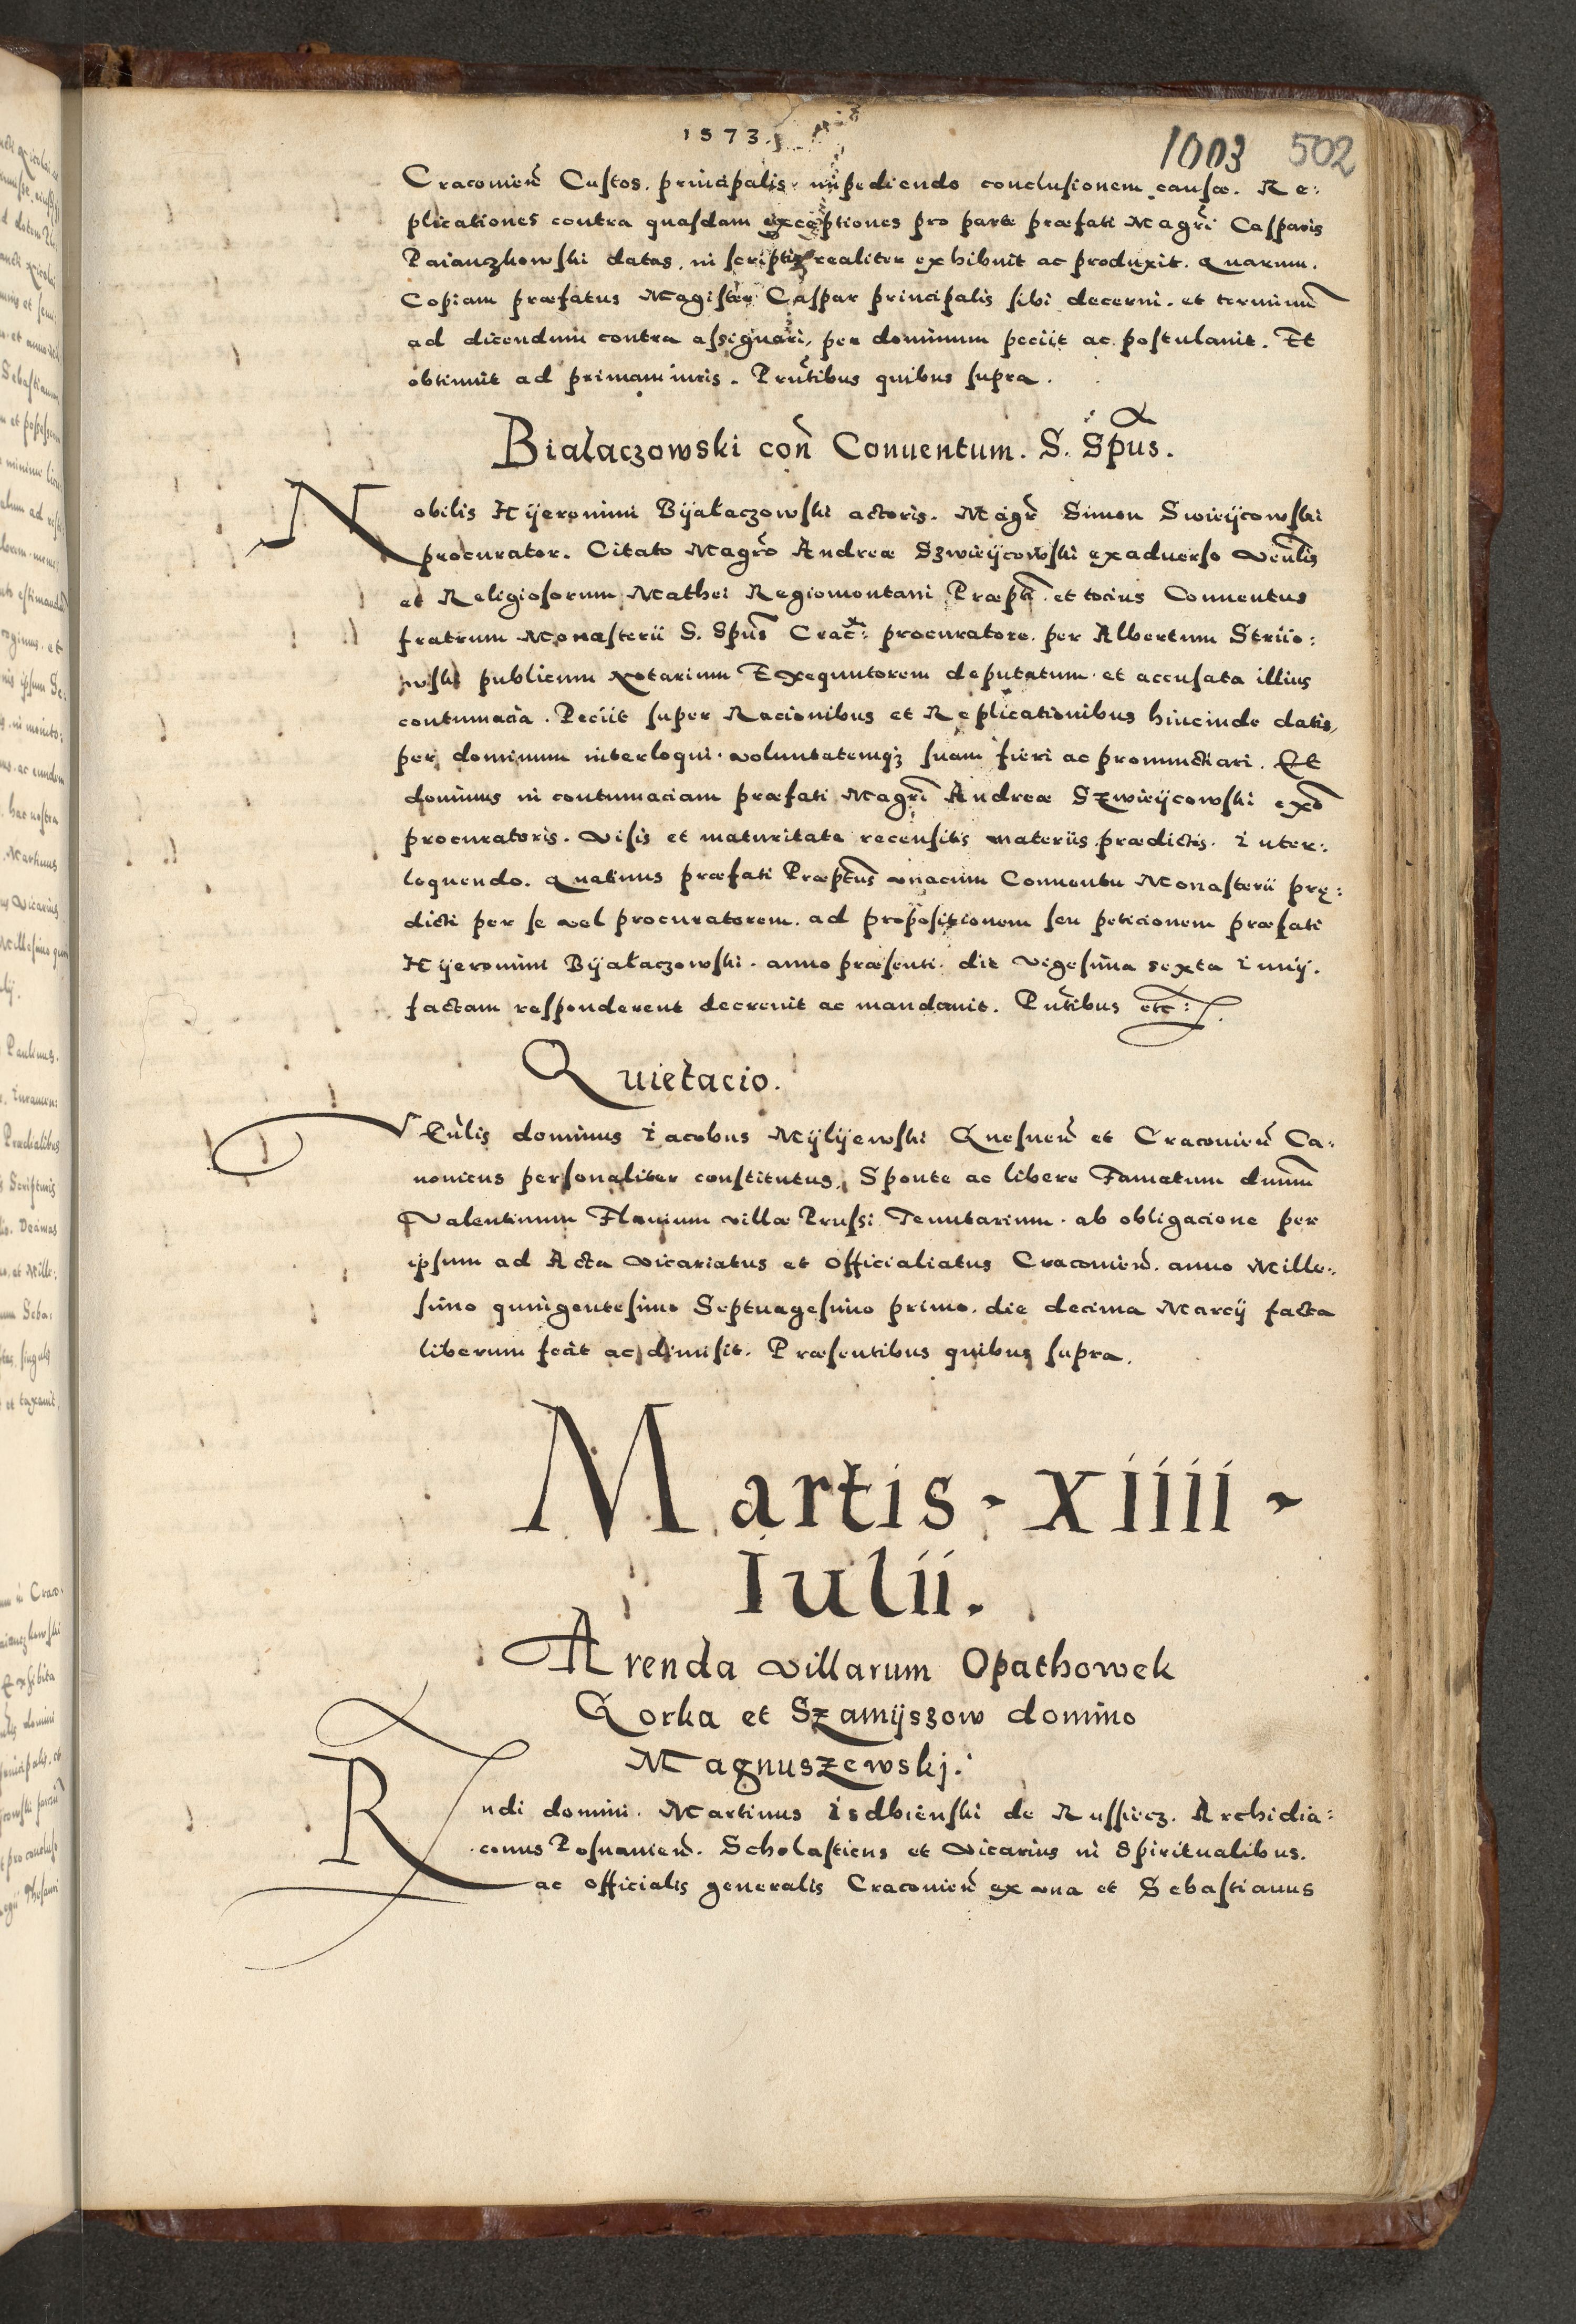 1573.
1003 502
Cracovień Custos. principalis. impediendo conclusionem causæ. Re:
plicationes contra quasdam exceptiones pro parte præfati Magr̃i Casparis
Paianczkowski datas, in scriptis realiter exhibuit ac produxit. Quarum.
Copiam præfatus Magister Caspar principalis sibi decerni. et terminũ
ad dicendum contra assignari, per dominum peciit ac postulavit. Et
obtinuit ad primam iuris. Pñtibus quibus supra.
Bialaczowski coñ Conuentum. S. Sp̃us.
Nobilis Hÿeronimi Bÿałaczowski actoris. Magr̃ Simon Swieÿcowski
procurator. Citato Magr̃o Andreæ Szwieÿcowski exaduerso Veñlis
et Religiosorum Mathei Regiomontani Præp̃ti. et tocius Conuentus
fratrum Monasterii S. Sp̃us Crac̃: procuratore. per Albertum Striio:
wski publicum Notarium Exequutorem deputatum. et accusata illius
contumacia. Peciit super Racionibus et Replicationibus hincinde datis,
per dominum interloqui. voluntatemqз suam fieri ac pronunctiari. Et
dominus in contumaciam præfati Magr̃i Andreæ Szwieÿcowski exõ
procuratoris. Visis et maturitate recensitis materiis prædictis. Inter:
loquendo. Quatinus præfati Præp̃tus vnacum Conuentu Monasterii prę:
dicti per se vel procuratorem. ad propositionem seu peticionem præfati
Hÿeronimi Bÿałaczowski. anno præsenti. die Vigesima sexta Iunÿ.
factam responderent decreuit ac mandauit. Pñtibus etc:
Quietacio.
Veñlis dominus Iacobus Mÿlÿewski Gnesneñ et Cracovieñ Ca:
nonicus personaliter constitutus, Sponte ac libere Famatum dnum̃
Valentinum Flanium villæ Prussi Tenutarium. ab obligacione per
ipsum ad Acta Vicariatus et Officialiatus Cracovieñ. anno Mille:
simo quingentesimo Septuagesimo primo. die decima Marcÿ facta
liberum fecit ac dimisit. Præsentibus quibus supra.
Martis - xiiii -
Iulii.
Arenda Villarum Opathowek
Gorka et Szamÿszow domino
Magnuszewskj.
Rñdi domini. Martinus Isdbienski de Russiecz. Archidia:
conus Posnanień. Scholasticus et Vicarius in Spiritualibus.
ac Officialis generalis Cracovień ex vna et Sebastianus